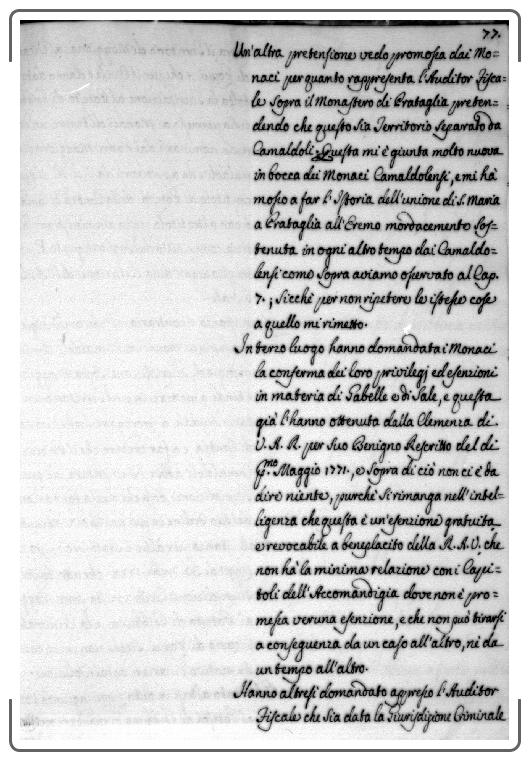 77.
Un'altra pretensione vedo promossa dai Mo=
naci per quanto rappresenta l'Auditor Fisca=
le sopra il Monastero di Prataglia preten=
dendo che questo sia Territorio separato da
Camaldoli; Questa mi è giunta molto nuova
in bocca dei Monaci Camaldolensi, e mi hà
mosso a far l'Istoria dell'unione di S. Maria
a Prataglia all'Eremo mordacemente sos=
tenuta in ogni altro tempo dai Camaldo=
lensi come sopra aviamo osservato al Cap.
7.; Sicchè per non ripetere le istesse cose
a quello mi rimetto.
In terzo luogo hanno domandata i Monaci
la conferma dei loro privilegj ed esenzioni
in materia di Gabelle e di Sale, e questa
già l'hanno ottenuta dalla Clemenza di
V. A. R. per suo Benigno Rescritto del dì
P.mo Maggio 1771., e sopra di ciò non ci è da
dire niente, purchè si rimanga nell'intel=
ligenza che questa è un'esenzione gratuita
e revocabile a beneplacito della R. A. V. che
non hà la minima relazione con i Capi=
toli dell'Accomandigia dove non è pro=
messa veruna esenzione, e che non può tirarsi
a conseguenza da un caso all'altro, nè da
un tempo all'altro.
Hanno altresì domandato appresso l'Auditor
Fiscale che sia data la Giurisdizione Criminale